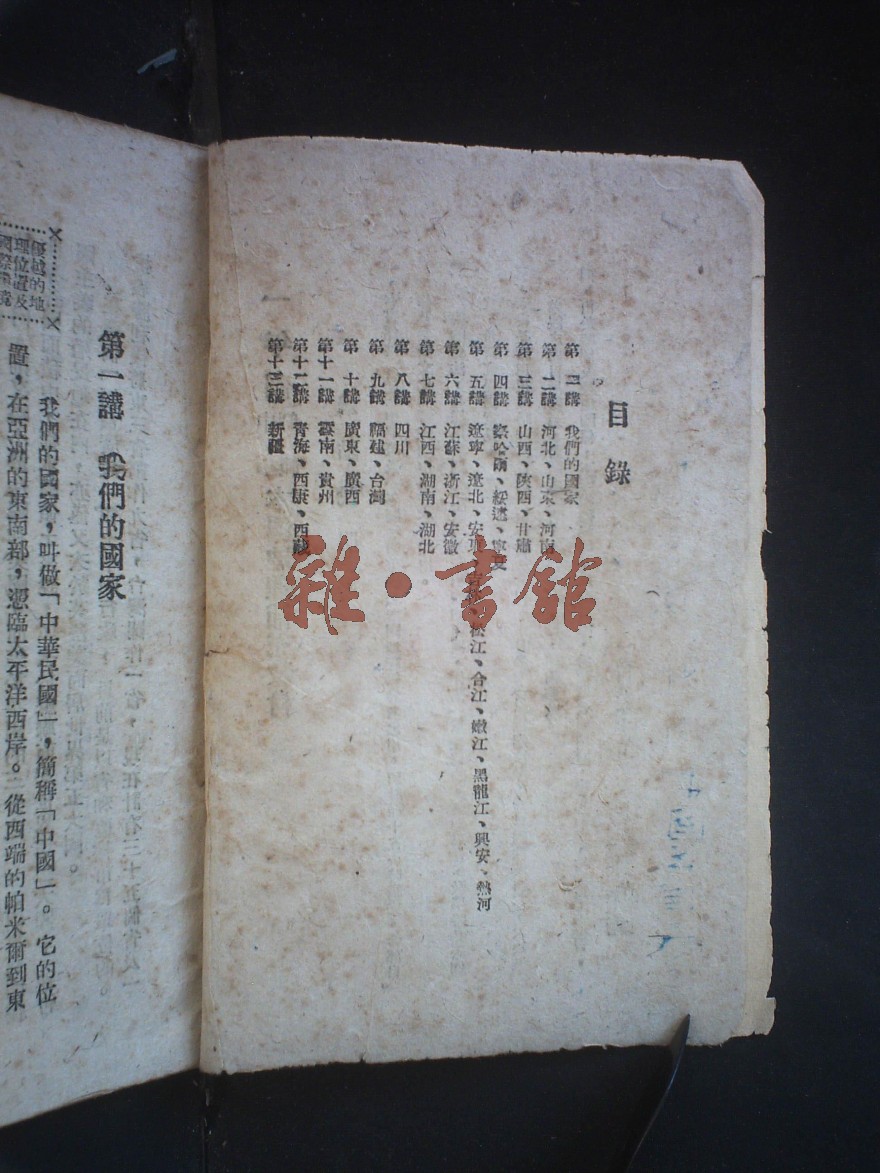 目錄
第一講 我們的國家
第二講 河北、山東、河南
第三講 山西、陝西、甘肅
第四講 察哈爾、綏遠、寧夏
第五講 遼寧、遼北、安東、松江、合江、嫩江、黑龍江、興安、熱河
第六講 江蘇、浙江、安徽
第七講 江西、湖南、湖北
第八講 四川
第九講 福建、台灣
第十講 廣東、廣西
第十一講 雲南、貴州
第十二講 青海、西康、西藏
第十三講 新疆
雜·書館
優越的地
理位置及
國際
第一講 我們的國家
我們的國家，叫做「中華民國」，簡稱「中國」。它的位
置，在亞洲的東南部，憑臨太平洋西岸。從西端的帕米爾到東